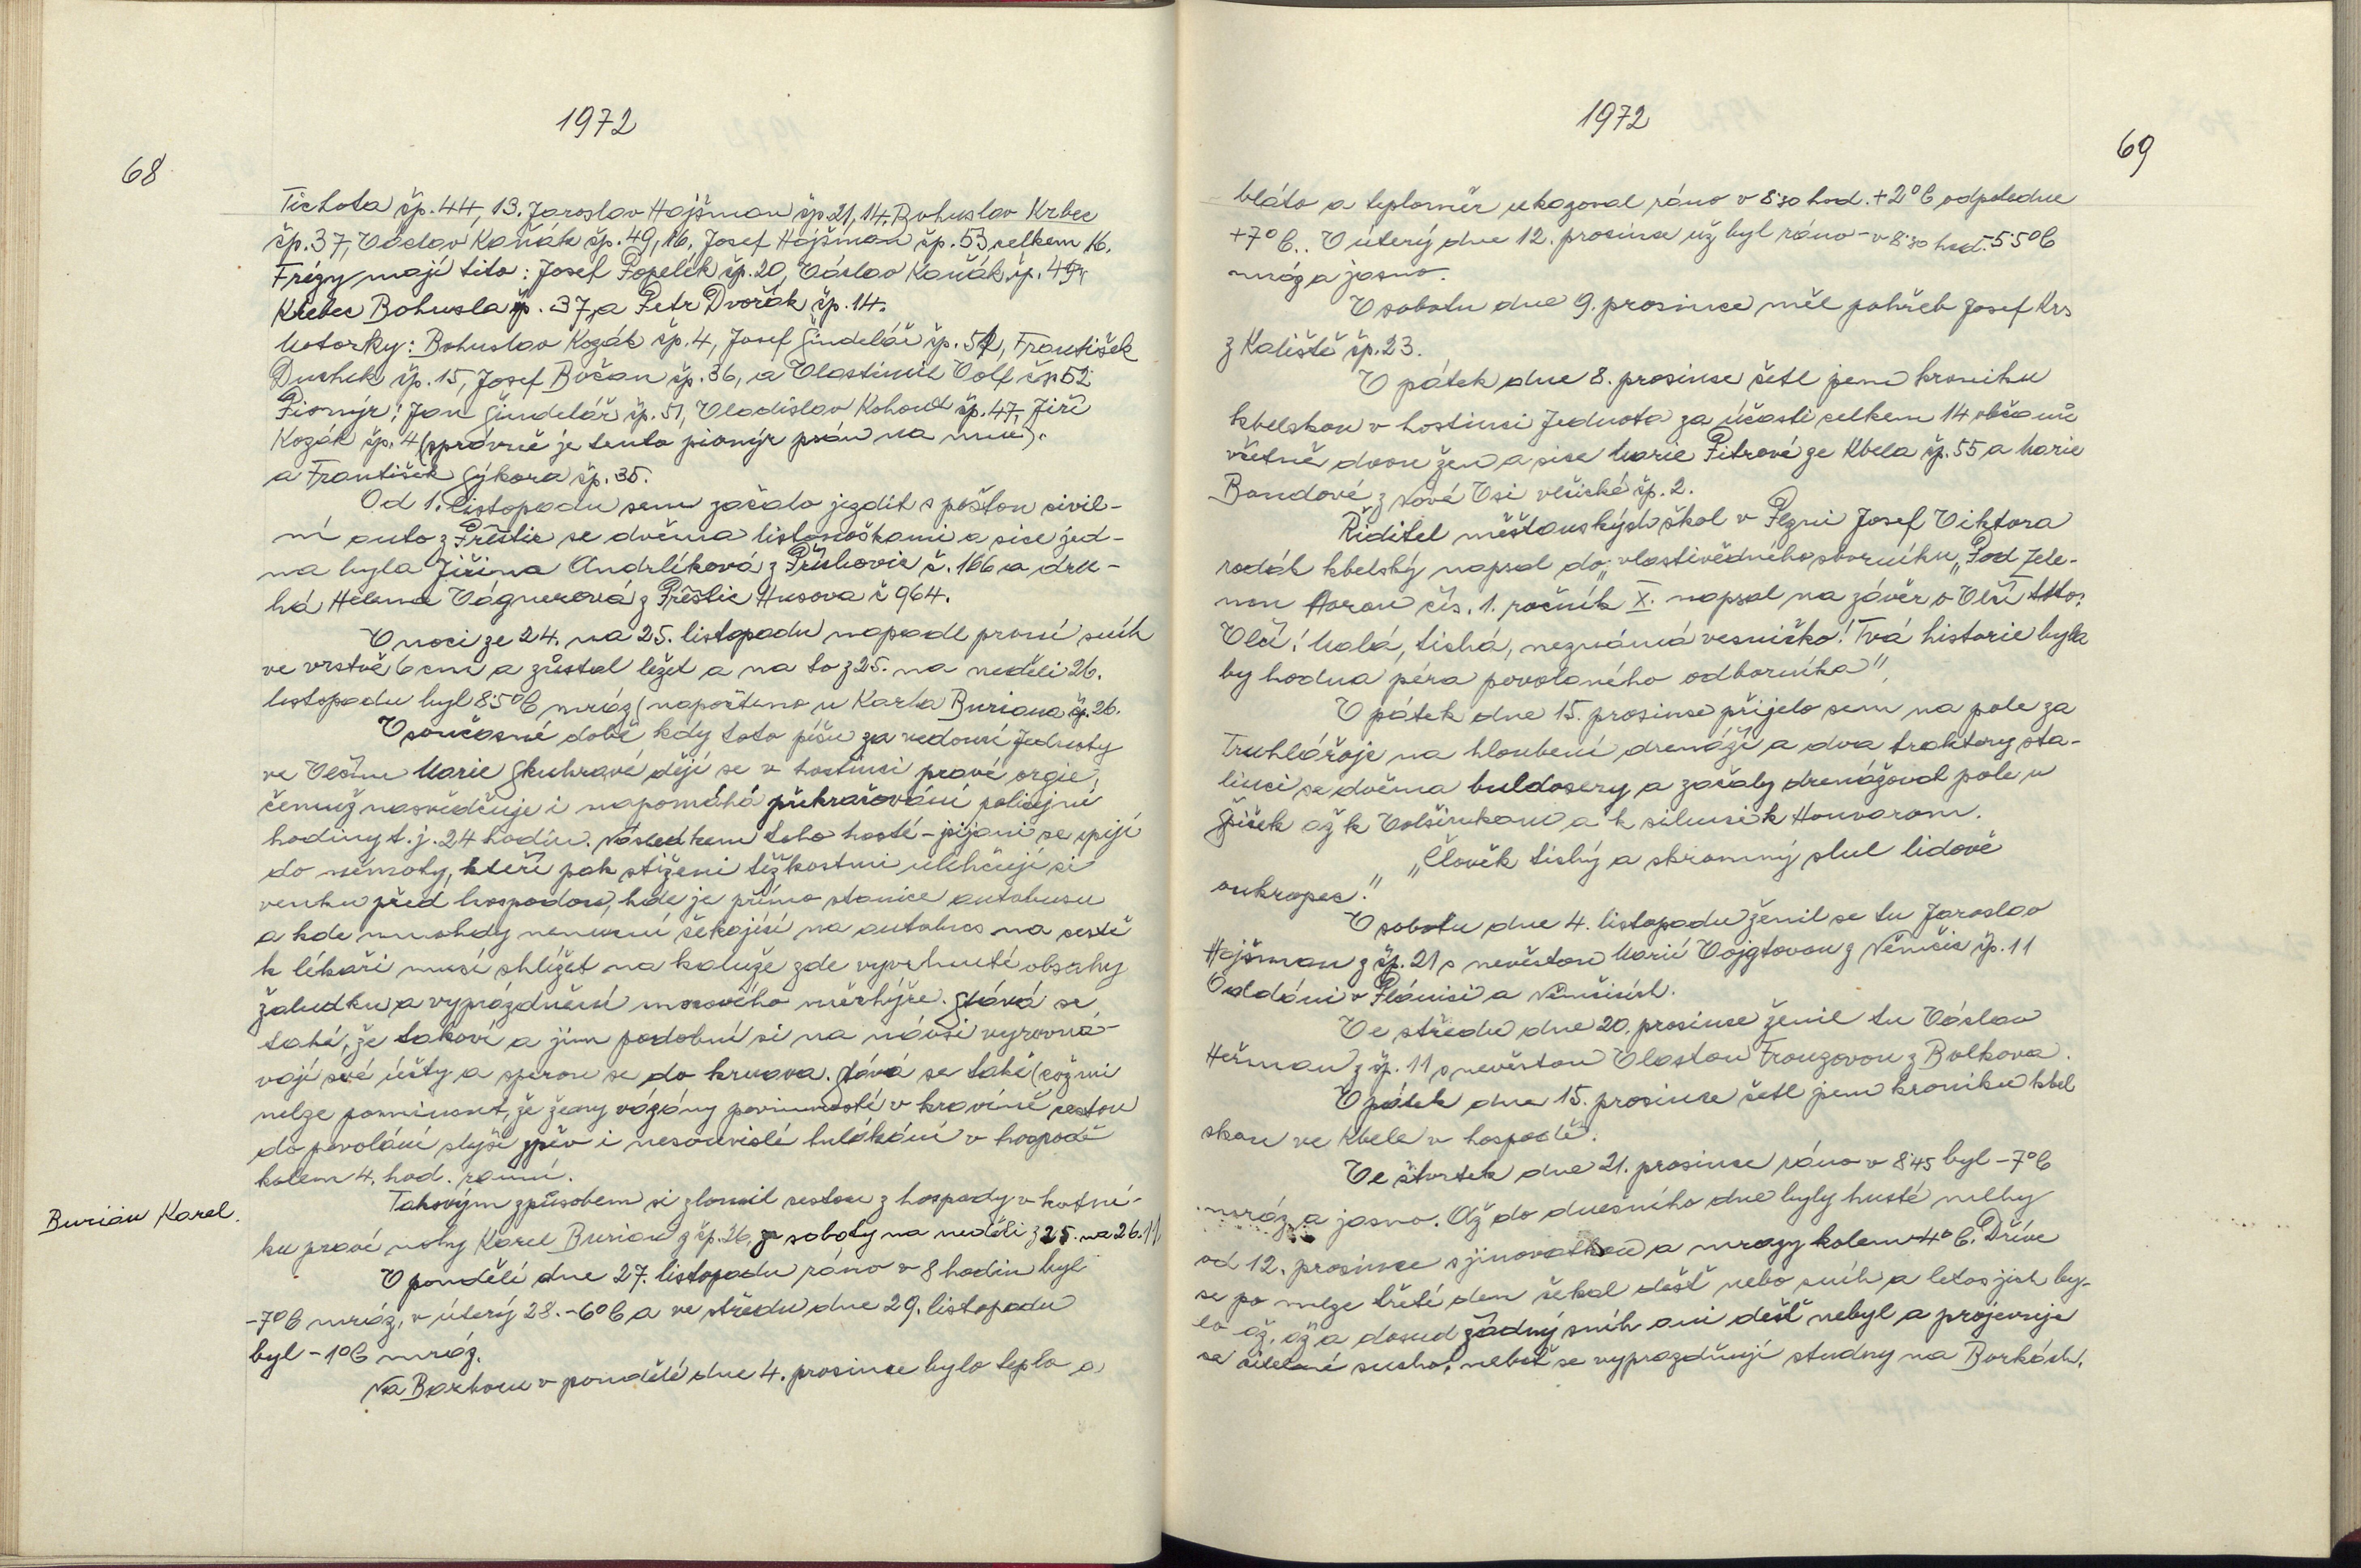 1972
68
Tichota čp. 44, 13. Jaroslav Hajšman čp. 21, 14. Bohuslav Krbec
čp. 37, Václav Kaňák čp. 49, 16. Josef Hajšman čp. 53 celkem 16.
Frézy mají tito: Josef Popelík čp. 20, Václav Kaňák čp. 49,
Krbec Bohusla čp. 37, a Petr Dvořák čp. 14.
Motorky: Bohuslav Kozák čp. 4, Josef Šindelář čp. 51, František
Duchek čp. 15, Josef Bočan čp. 36, a Vlastimil Volf čp 52
Pionýr: Jan Šindelář čp. 51, Vladislav Kohout čp. 47, Jiří
Kozák čp. 4 (správně je tento pionýr psán na mne).
a František Sýkora čp. 35.
Od 1. listopadu sem začalo jezdit s poštou civil-
ní auto z Přeštic se dvěma listonoškami a sice jed-
na byla Jiřina Andrlíková z Příchovic č. 166 a dru-
há Helena Vágnerová z Přeštic Husova č 964.
V noci ze 24. na 25. listopadu napadl první sníh
ve vrstvě 6 cm a zůstal ležet a na to z 25. na neděli 26.
listopadu byl 8.5°C mráz (napočteno u Karla Buriana čp. 26.
V současné době kdy toto píšu za vedoucí Jednoty
ve Vlčím Marie Skuhravé dějí se v hostinci pravé orgie,
čemuž nasvědčuje i napomáhá překračování policejní
hodiny t.j. 24 hodin. Následkem toho hosté - pijani se opijí
do němoty, kteří pak stíženi těžkostmi ulehčují si
venku před hospodou, kde je přímo stanice autobusu
a kde mnohdy nemocní čekající na autobus na cestě
k lékaři musí shlížet na kaluže zde vyvrhnuté obsahy
žaludku a vyprázdnění močového měchýře. Stává se
také, že takoví a jim podobní si na návsi vyrovná-
vají své účty a sperou se do krvava. Stává se také (což ani
nelze pominout, že ženy vázány povinností v kravíně cestou
do povolání slyší zpěv i nesouvislé hulákání v hospodě
kolem 4. hod. ranní.
Takovým způsobem si zlomil cestou z hospody v kotní-
Burian Karel.
ku pravé nohy Karel Burian z čp. 26, ze soboty na neděli z 25. na 26. 11
V pondělí dne 27. listopadu ráno v 8 hodin byl
-7°C mráz, v úterý 28. -6°C a ve středu dne 29. listopadu
byl -1°C mráz.
Na Barboru v pondělí dne 4. prosince bylo teplo a
1972
69
bláto a teploměr ukazoval ráno v 8:30 hod. +2°C odpoledne
+7°C. V úterý dne 12. prosince už byl ráno - v 8:30 hod. -5.5°C
mráz a jasno.
V sobotu dne 9. prosince měl pohřeb Josef Krs
z Kaliště čp. 23.
V pátek dne 8. prosince četl jsem kroniku
kbelskou v hostinci Jednota za účasti celkem 14 občanů
včetně dvou žen a sice Marie Pitrové ze Kbela čp. 55 a Marie
Bandové z Nové Vsi vlčické čp. 2.
Ředitel měšťanských škol v Plzni Josef Viktora
rodák kbelský napsal do „vlastivědného sborníku „Pod Zele-
nou Horou čís. 1. ročník X. napsal na závěr o Vlčí toto:
Vlčí! Malá, tichá, neznámá vesničko! Tvá historie byla
by hodna péra povolaného odborníka".
V pátek dne 15. prosince přijelo sem na pole za
Truhlářoje na hloubení drenáží a dva traktory sta-
linci se dvěma buldosery a začaly drenážovat pole u
Šišek až k Volšinkam a k silnici k Honvarom.
„Člověk tichý a skromný slul lidově
oukropec."
V sobotu dne 4. listopadu ženil se tu Jaroslav
Hajšman z čp. 21 s nevěstou Marií Vojgtovou z Němčic čp. 11
Oddáni v Plánici a Němčicích.
Ve středu dne 20. prosince ženil tu Václav
Heřman z čp. 11 s nevěstou Vlastou Frouzovou z Bolkova.
V pátek dne 15. prosince četl jsem kroniku kbel
skou ve Kbele v hospodě.
Ve čtvrtek dne 21. prosince ráno v 8:45 byl -7°C
mráz a jasno. Až do dnešního dne byly husté mlhy
od 12. prosince s jinovatkou a mrazy kolem 4°C. Dříve
se po mlze třetí den čekal déšť nebo sníh a letos jich by-
lo až, až a dosud žádný sníh ani déšť nebyl a projevuje
se citelné sucho, neboť se vyprazdňují studny na Borkách.